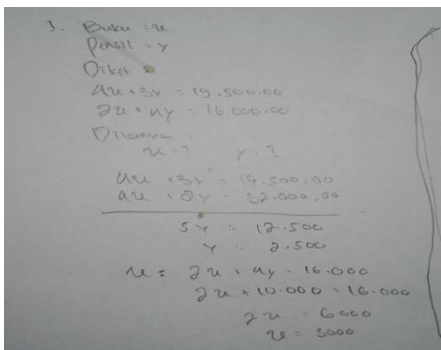 3. Buku : x
Pensil : y
Diket :
4x + 3y = 19.500.00
2x + 4y = 16.000.00
Ditanya :
x = ? y = ?
4x + 3y = 19.500,00
4x + 8y = 32.000,00
5y = 12.500
y = 2.500
x = 2x + 4y = 16.000
2x + 10.000 = 16.000
2x = 6000
x = 3000